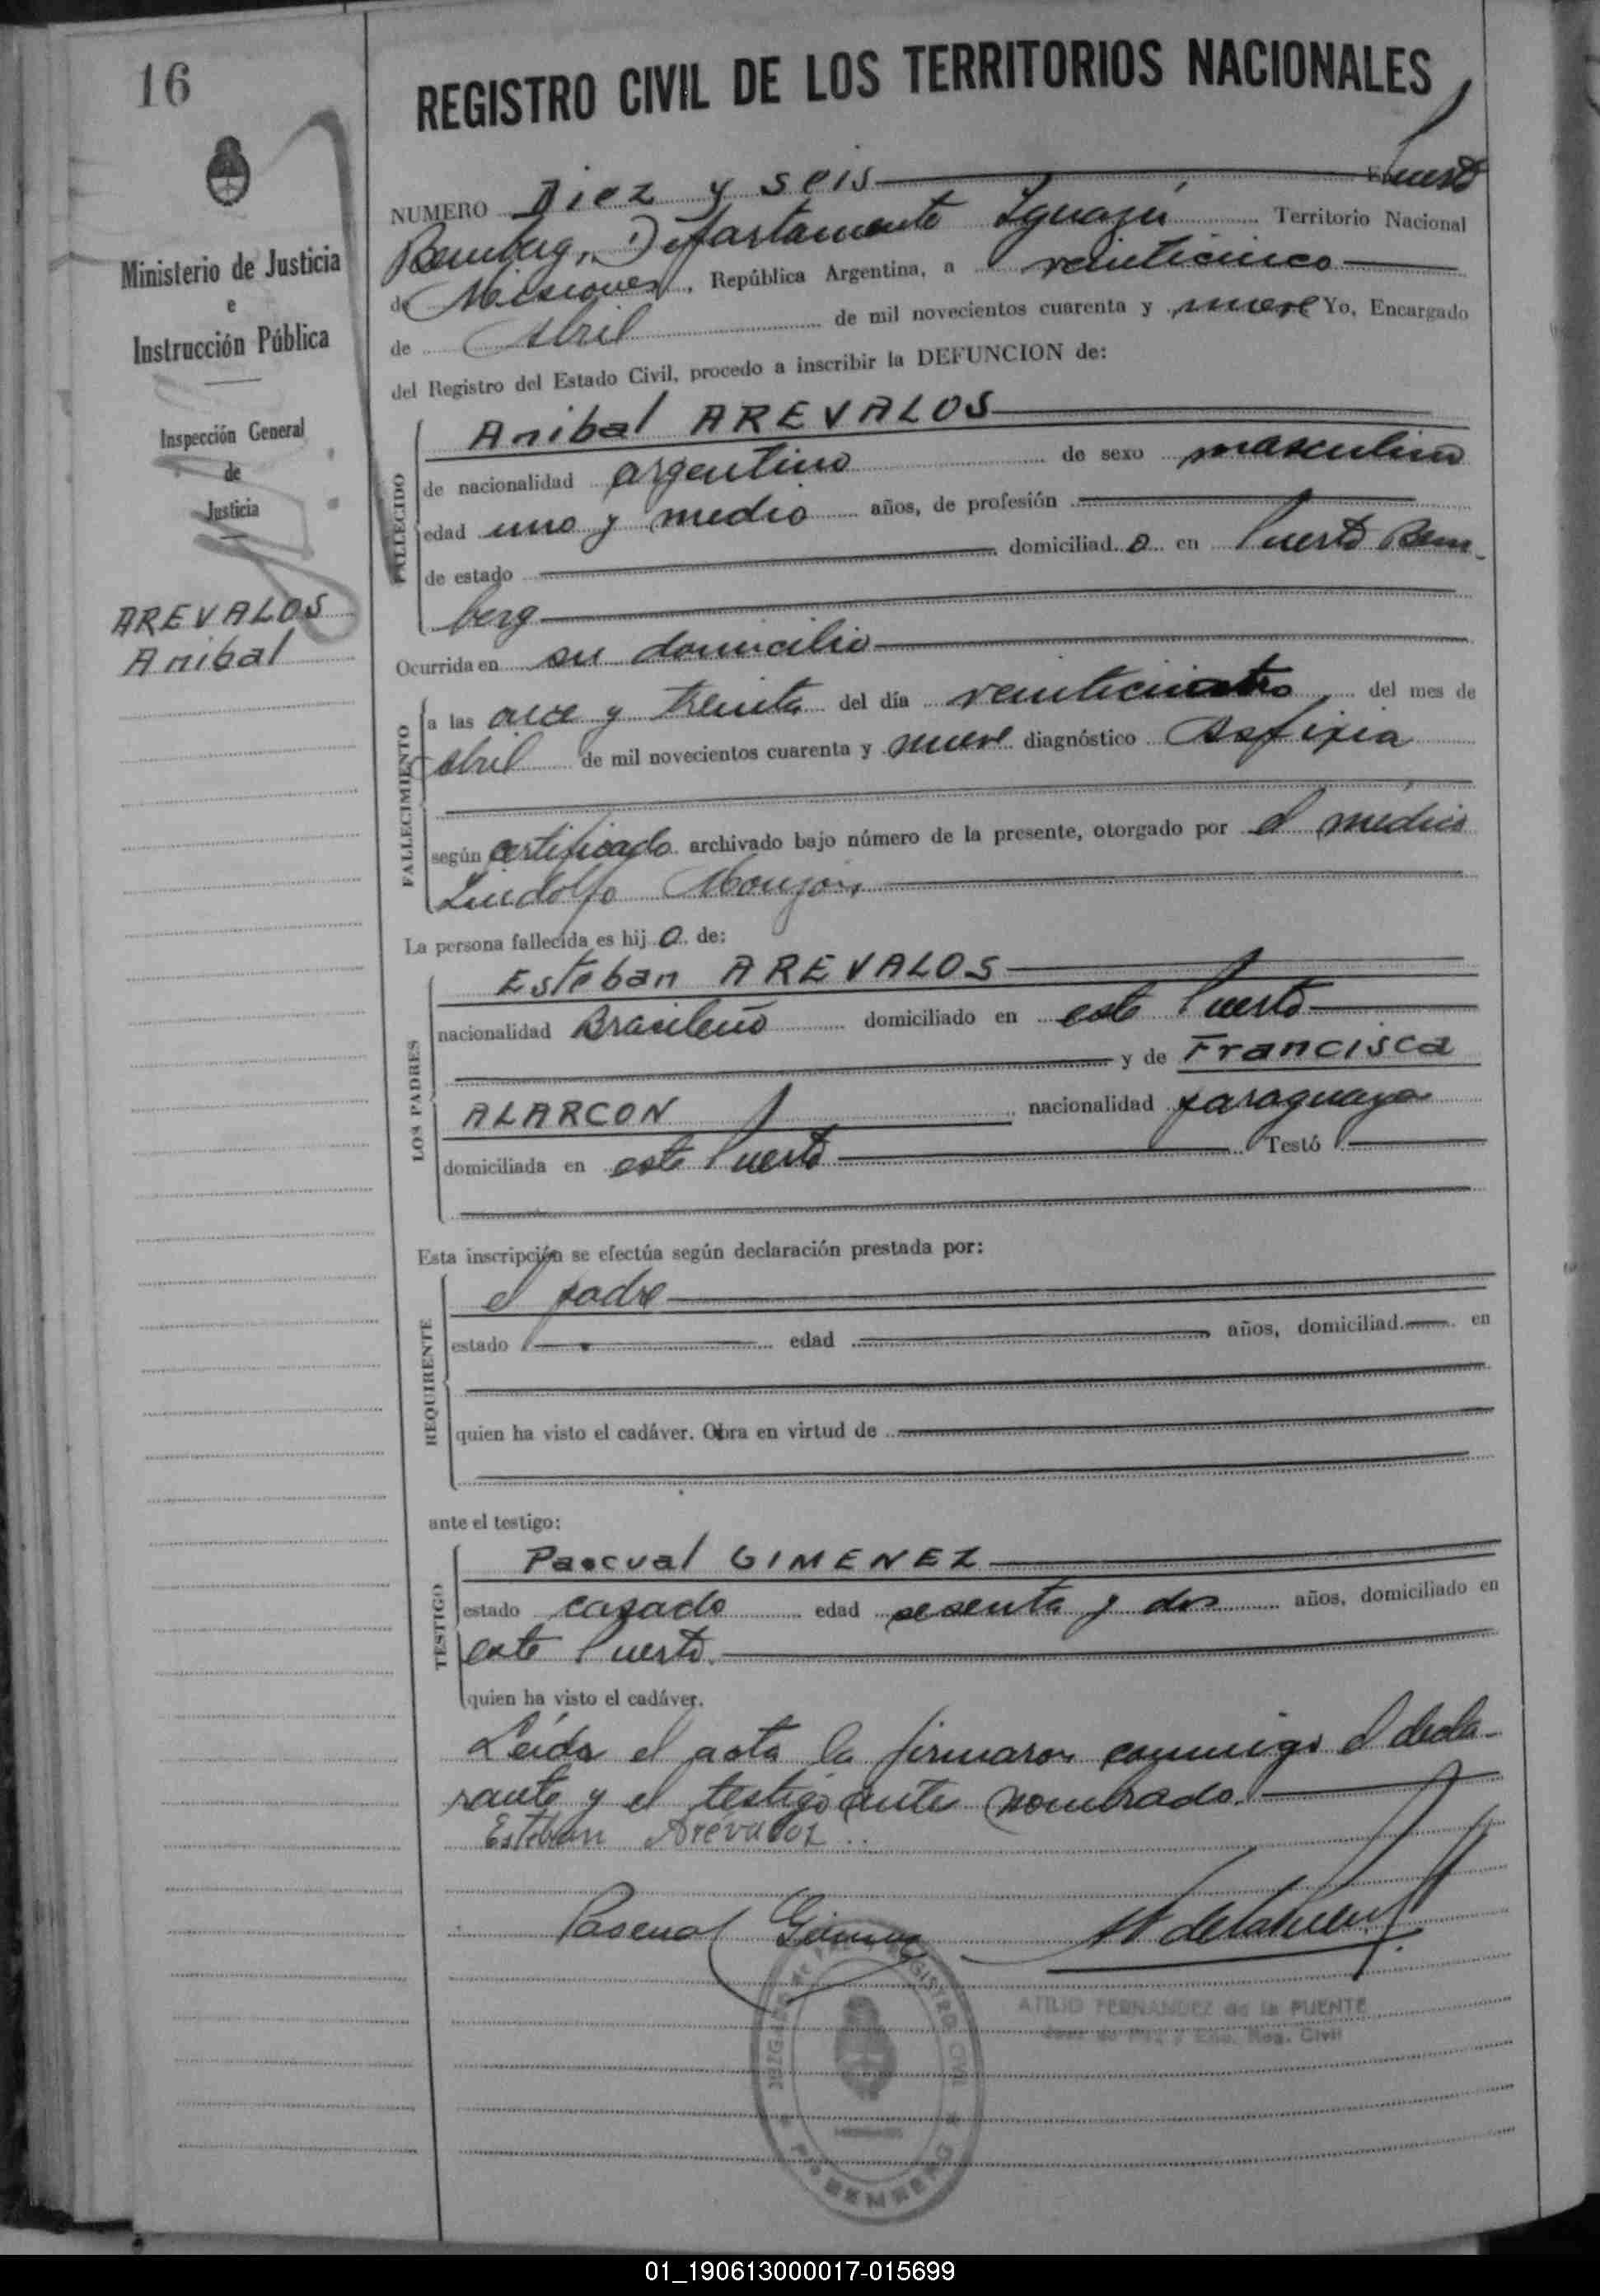 16
REGISTRO CIVIL DE LOS TERRITORIOS NACIONALES
Ministerio de Justicia
e
Instrucción Pública
Inspección General
de
Justicia
AREVALOS
Anibal
NUMERO Diez y seis Puerto
Bemberg, Departamento Iguazú Territorio Nacional
de Misiones, República Argentina, a veinticinco
de Abril de mil novecientos cuarenta y nueve Yo, Encargado
del Registro del Estado Civil, procedo a inscribir la DEFUNCION de:
FALLECIDO
Anibal AREVALOS
de nacionalidad argentino de sexo masculino
edad uno y medio años, de profesión
de estado domiciliad o en Puerto Bem-
berg
Ocurrida en su domicilio
FALLECIMIENTO
a las once y treinta del día veinticuatro del mes de
Abril de mil novecientos cuarenta y nueve diagnóstico Asfixia
según certificado archivado bajo número de la presente, otorgado por el médico
Lindolfo Monzon
La persona fallecida es hij o de:
LOS PADRES
Esteban AREVALOS
nacionalidad Brasileño domiciliado en este Puerto
y de Francisca
ALARCON nacionalidad paraguaya
domiciliada en este Puerto Testó
Esta inscripción se efectúa según declaración prestada por:
REQUIRENTE
el padre
estado edad años, domiciliad en
quien ha visto el cadáver. Obra en virtud de
ante el testigo:
TESTIGO
Pascual GIMENEZ
estado casado edad sesenta y dos años, domiciliado en
este Puerto.
quien ha visto el cadáver.
Leída el acta la firmaron conmigo el decla-
rante y el testigo ante nombrado.
Esteban Arevalos
Pascual Gimenez
ATILIO FERNANDEZ de la PUENTE
Juez de Paz y Enc. Reg. Civil
REGISTRO CIVIL
BEMBERG
01_190613000017-015699